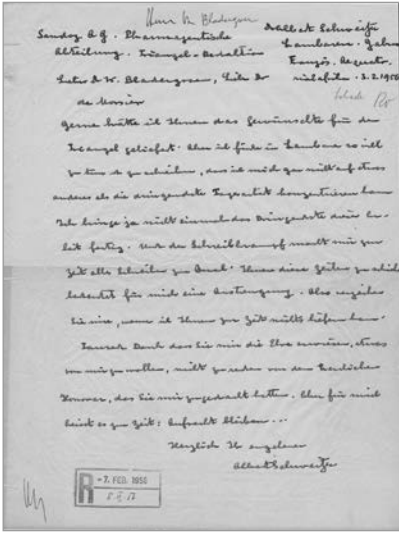 Herrn Dr. Bladergroen
Sandoz A.G. Pharmazeutische
Abteilung. Triangel-Redaktion
Dr Albert Schweitzer
Lambarene. Gabun
Französ. Aequator.
2.2.1956
Gerne hätte ich Ihnen das Gewünschte für den
Triangel geliefert. Aber ich finde in Lambarene so viel
zu tun zu schreiben, dass ich mich gar nicht auf etwas
anderes als die dringendste Tagesarbeit konzentrieren kann
Ich bringe ja nicht einmal das Dringendste dieser Ar-
beit fertig. Und der Schreibkrampf macht mir zur
Zeit alles Schreiben zur Qual. Ihnen diese Zeilen zu schreiben
bedeutet für mich eine Anstrengung. Also verzeihen
Sie mir, wenn ich Ihnen zur Zeit nichts liefern kann.
Tausend Dank dass Sie mir die Ehre erweisen, etwas
von mir zu wollen, nicht zu reden von dem herrlichen
Honorar, das Sie mir zugedacht hatten. Aber für mich
heisst es zur Zeit: Aufrecht bleiben...
Herzlich Ihr ergebener
Albert Schweitzer
R -7. FEB. 1956